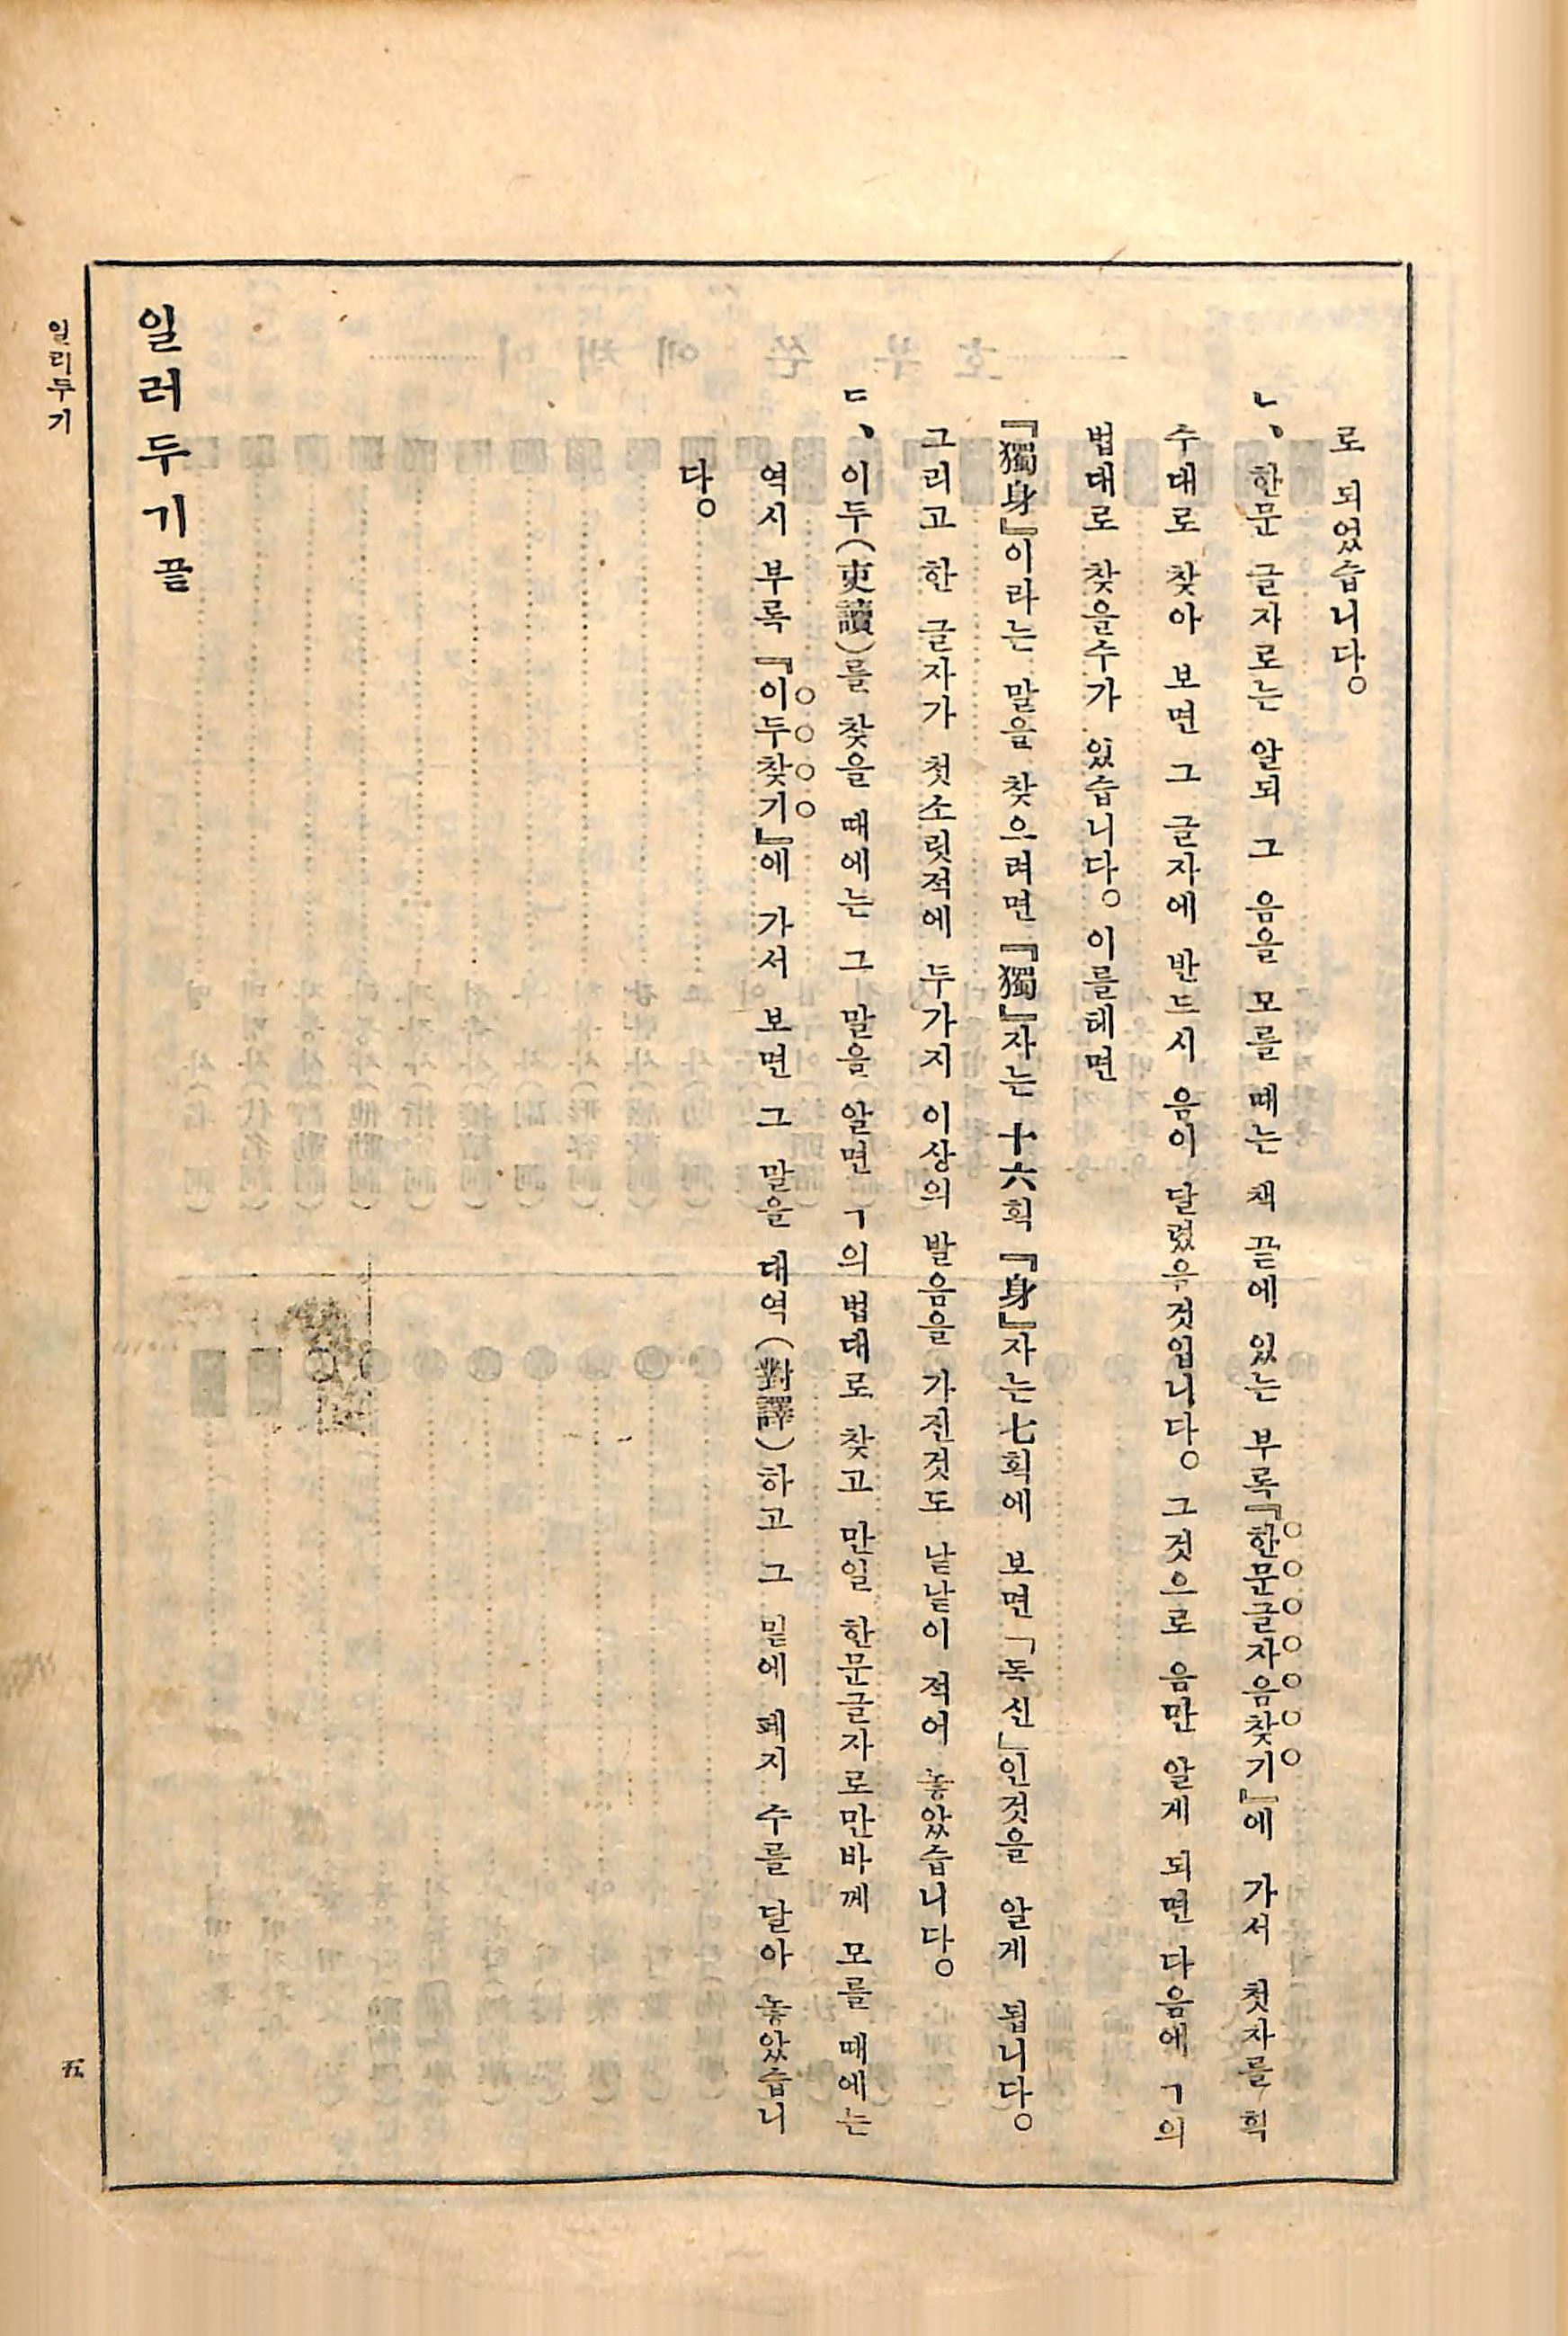 로 되었습니다。
ㄴ、한문 글자로는 알되 그 음을 모를 때는 책 끝에 있는 부록『한문글자음찾기』에 가서 첫자를 획
수대로 찾아 보면 그 글자에 반드시 음이 달렸을것입니다。 그것으로 음만 알게 되면 다음에 ㄱ의
법대로 찾을수가 있습니다。이를테면
『獨身』이라는 말을 찾으려면 『獨』자는 十六획 『身』자는 七획에 보면 「독신」인것을 알게 됩니다。
그리고 한 글자가 첫소릿적에 두가지 이상의 발음을 가진것도 낱낱이 적어 놓았습니다。
ㄷ、이두(吏讀)를 찾을 때에는 그 말을 알면 ㄱ의 법대로 찾고 만일 한문글자로만바께 모를 때에는
역시 부록 『이두찾기』에 가서 보면 그 말을 대역(對譯)하고 그 밑에 페지 수를 달아 놓았습니
다。
일러두기끝
일러두기
五